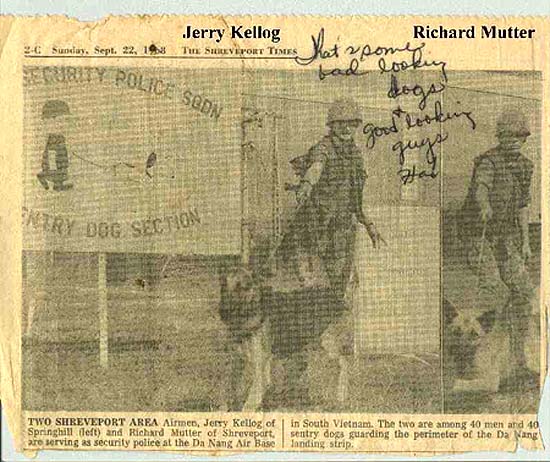 Jerry Kellog
Richard Mutter
2-C Sunday, Sept. 22, 1968 THE SHREVEPORT TIMES
That's some
bad looking
dogs
+
good looking
guys
SECURITY POLICE SQDN
ENTRY DOG SECTION
TWO SHREVEPORT AREA Airmen, Jerry Kellog of
Springhill (left) and Richard Mutter of Shreveport,
are serving as security police at the Da Nang Air Base
in South Vietnam. The two are among 40 men and 40
sentry dogs guarding the perimeter of the Da Nang
landing strip.